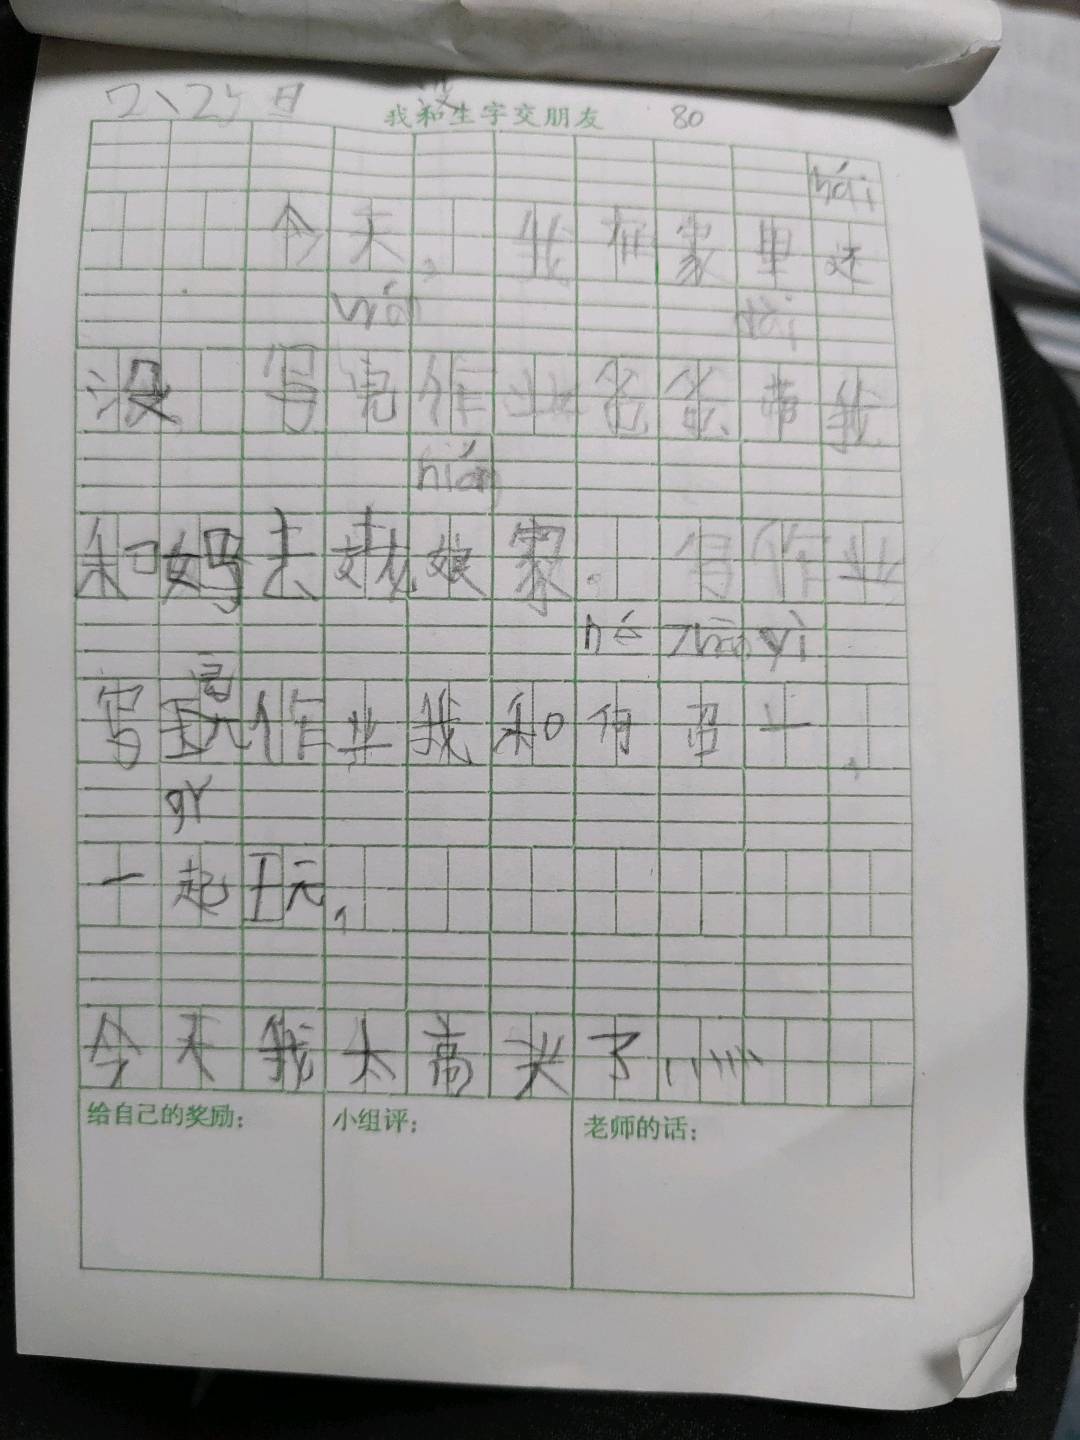 2、25日 没
我和生字交朋友 80
hái
今天,我在家里还
wán dài
没 写完作业爸爸带我
niáng
和妈去姑娘家。写作业
hé zhāo yì
写完作业我和何召一,
一起玩,
今天我太高兴了……
给自己的奖励: 小组评: 老师的话: